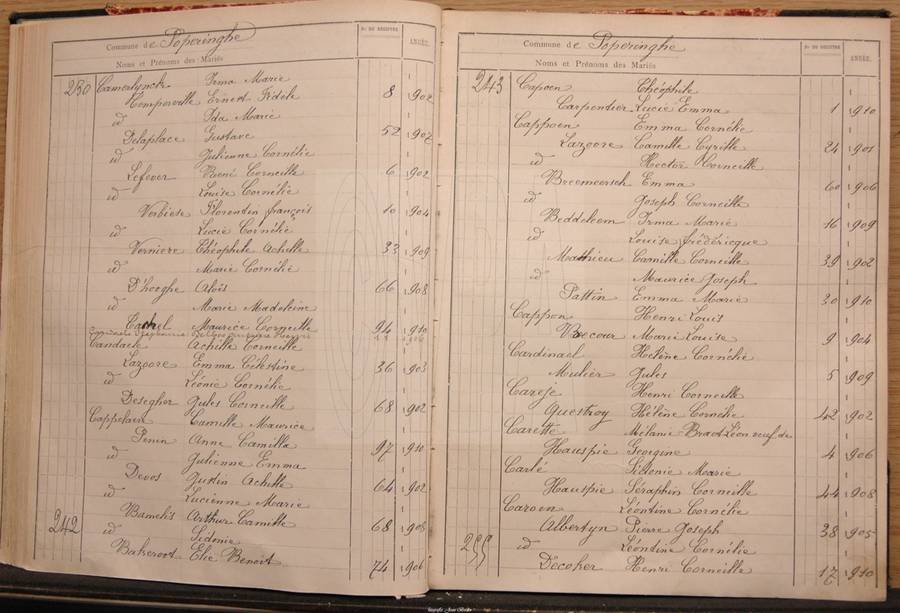 Commune de Poperinghe
No DU REGISTRE
ANNÉE.
Noms et Prénoms des Mariés
250 Camerlynck Irma Marie
Kemperville Ernest Fidèle 8 1902
id Ida Marie
Delaplace Gustave 52 1907
id Julienne Cornélie
Lefever René Corneille 6 1902
id Louise Cornélie
Verbiese Florentin françois 10 1904
id Lucie Cornélie
Verniere Théophile Achille 33 1909
id Marie Cornélie
D'hooghe Aloïs 66 1908
id Marie Madeleine
Maurice Corneille 94 1910
Candaele Achille Corneille
Lazoore Emma Célestine 36 1903
id Léonie Cornélie
Desegher Jules Corneille 68 1902
Cappelain Camille Maurice
Penin Anne Camilla 97 1910
id Julienne Emma
Devos Justin Achille 64 1902
id Lucienne Marie
Bamelis Arthur Camille 68 1908
242 id Sidonie
Bakeroot Elie Benoit 74 1906
Commune de Poperinghe
No DU REGISTRE
ANNÉE.
Noms et Prénoms des Mariés
243 Capoen Théophile
Carpentier Lucie Emma 1 1910
Cappoen Emma Cornélie
Lazoore Camille Cyrille 24 1901
id Hector Corneille
Breemeersch Emma 60 1906
id Joseph Corneille
Beddeleem Irma Marie 16 1909
id Louise frédérique
Mathieu Camille Corneille 39 1902
id Maurice Joseph
Pattin Emma Marie 30 1910
Cappon Henri Louis
Becour Marie Louise 9 1904
Cardinael Hélène Cornélie
Mulier Jules 5 1909
Henri Corneille
Questroy Hélène Cornélie 42 1902
Carette Mélanie veuf de
Hauspie Georgine 4 1906
Carlé Sidonie Marie
Hauspie Séraphin Corneille 44 1908
Caroen Léontine Cornélie
Albertyn Pierre Joseph 38 1905
255 id Léontine Cornélie
Decoker Henri Corneille 17 1910